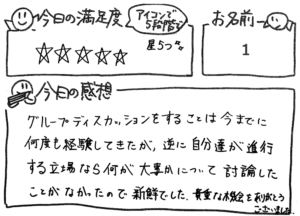 今日の満足度
アイコンで
5段階で
星5つ°。
お名前
1
今日の感想
グループディスカッションをすることは今までに
何度も経験してきたが、逆に自分達が進行
する立場なら何が大事かについて討論した
ことがなかったので新鮮でした。貴重な機会を有りがとう
ございました